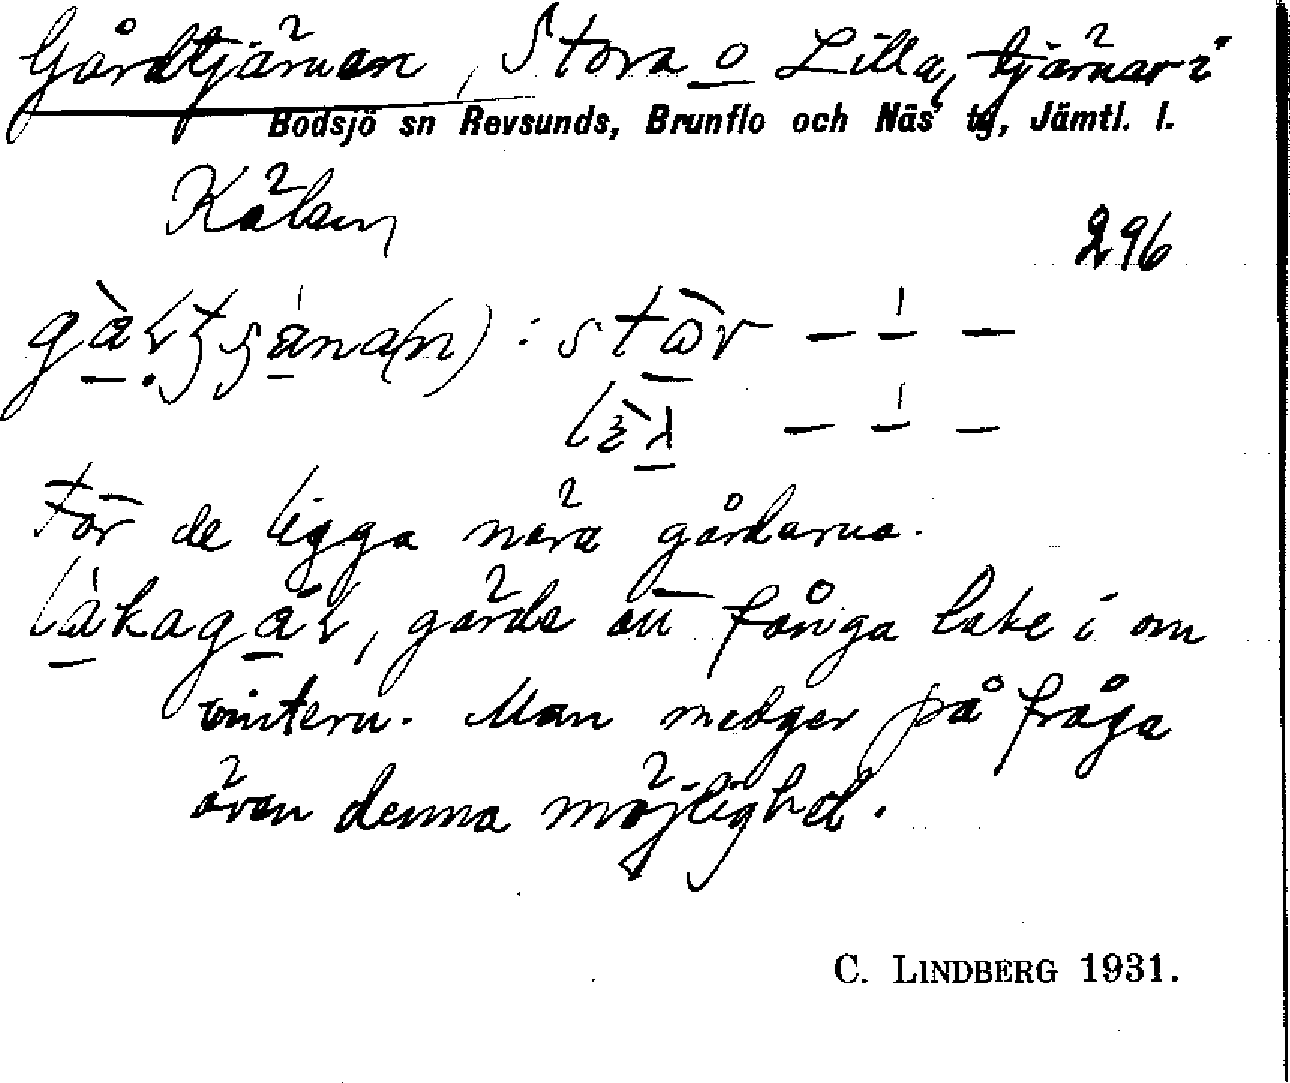 Gårdtjärnen, Stora o Lilla, tjärnar i
Bodsjö sn Revsunds, Brunflo och Näs tg, Jämtl. l.
Kälen
296
För de ligga nära gårdarna.
gärde att fånga lake i om
vintern. Man medger på fråga
även denna möjlighet.
C. LINDBERG 1931.